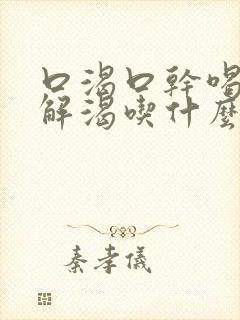 口渴口幹喝
解渴喫什麼
秦孝儀